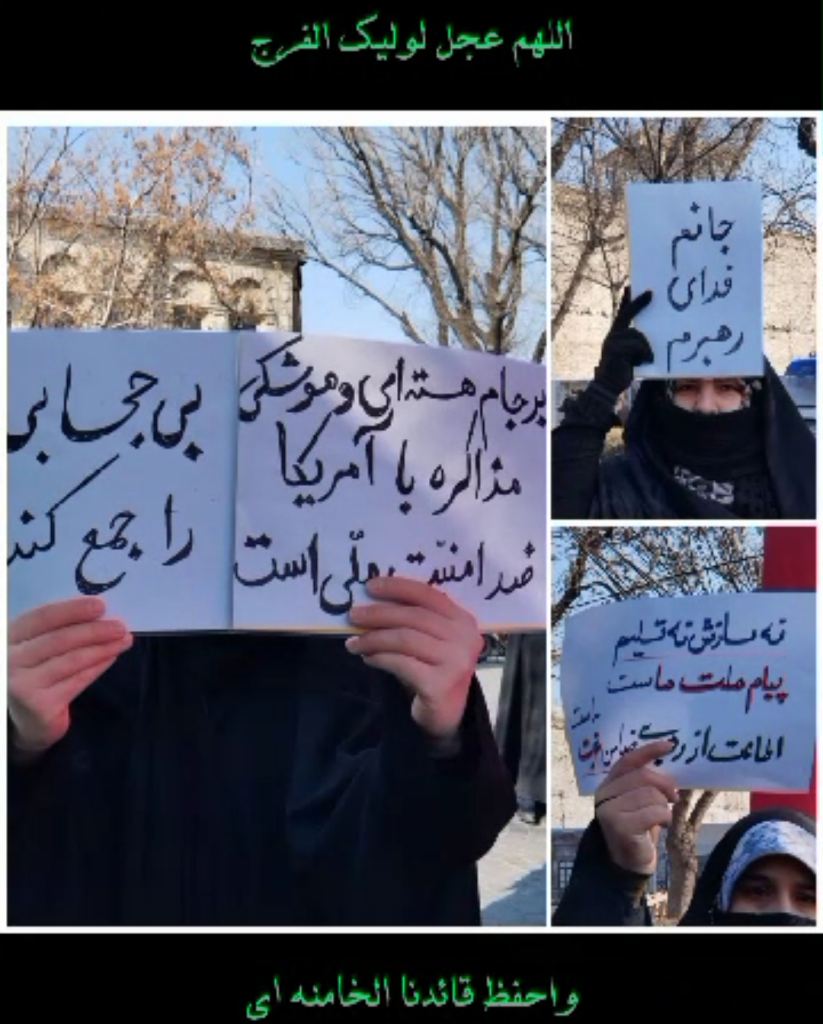 اللهم عجل لولیک الفرج
بی حجابی
را جمع کنید
برجام هسته‌ای و موشکی
مذاکره با آمریکا
ضد امنیت ملّی است
جانم
فدای
رهبرم
نه سازش نه تسلیم
پیام ملت ماست
اطاعت از رهبری
واحفظ قائدنا الخامنه ای